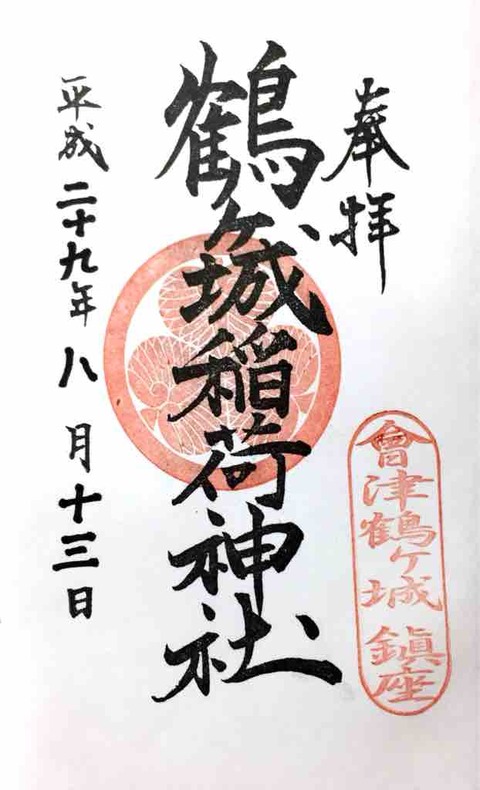 奉拝
會津鶴ヶ城 鎮座
鶴ヶ城稲荷神社
平成二十九年八月十三日